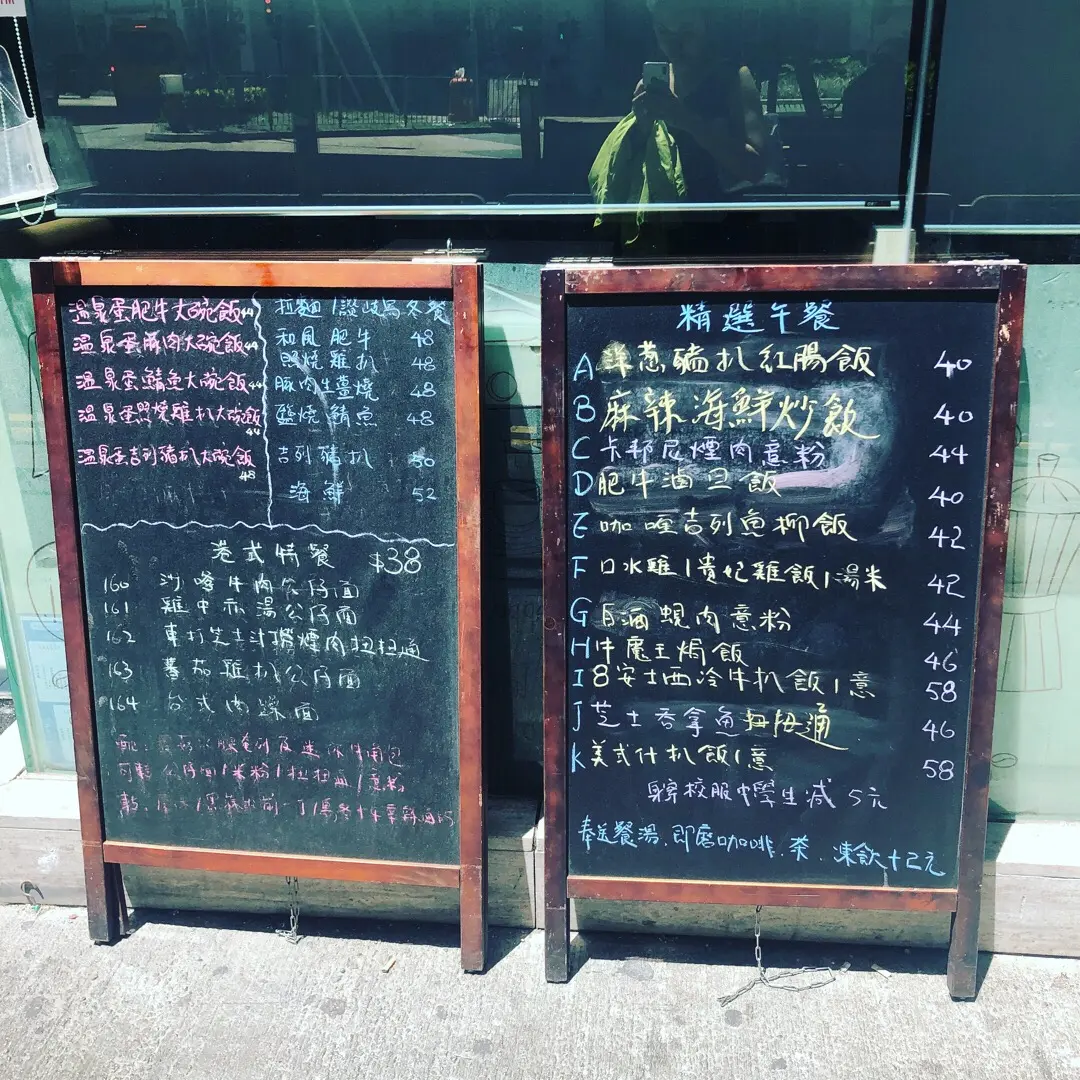 温泉蛋肥牛大碗飯44
温泉蛋豚肉大碗飯44
温泉蛋鯖魚大碗飯44
温泉蛋照燒雞扒大碗飯
44
温泉蛋吉列豬扒大碗飯
48
拉麵/讚岐烏冬餐
和風肥牛 48
照燒雞扒 48
豚肉生薑燒 48
鹽燒鯖魚 48
吉列豬扒 50
海鮮 52
港式特餐 $38
160 沙嗲牛肉公仔面
161 雞中亦湯公仔面
162 車打芝士汁煙肉扭扭通
163 蕃茄雞扒公仔面
164 台式肉燥面
精選午餐
A 洋葱豬扒紅腸飯 40
B 麻辣海鮮炒飯 40
C 卡邦尼煙肉意粉 44
D 肥牛滷旦飯 40
E 咖喱吉列魚柳飯 42
F 口水雞/貴妃雞飯/湯米 42
G 白酒蜆肉意粉 44
H 牛魔王焗飯 46
I 8安士西冷牛扒飯/意 58
J 芝士吞拿魚扭扭通 46
K 美式什扒飯/意 58
穿校服中學生減5元
奉送餐湯.即磨咖啡.茶.凍飲+2元